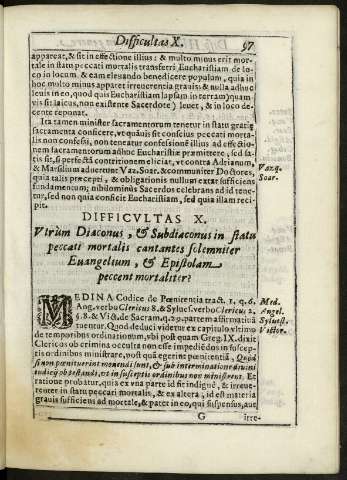 Difficultas X. 97
apparent, & sit in effectione illius: & multo minus erit mor-
tale in statu peccati mortalis transferri Eucharistiam de lo-
co in locum, & eam elevando benedicere populum, quia in
hoc multo minus apparet irreverentia gravis: & nulla adhuc
levis in eo, quod quis Eucharistiam lapsam in terram (quam-
vis sit laicus, non existente Sacerdote) levet, & in loco de-
center reponat.
Ita tamen minister sacramentorum tenetur in statu gratiæ
sacramenta conficere, ut quàuis sit conscius peccati morta-
lis non confessi, non teneatur confessionē illius ad effectio-
nem sacramentorum adhuc Eucharistiæ præmittere, sed sa-
tis sit, si perfectā contritionem eliciat, ut contra Adrianum,
& Marsilium advertunt Vaz. Soar. & communiter Doctores,
quia talis præcepti, & obligationis nullum extat sufficiens
fundamentum; nihilominus Sacerdos celebrans ad id tene-
tur, sed non quia conficit Eucharistiam, sed quia illam reci-
pit.
Vazq.
Soar.
DIFFICULTAS X.
Vtrùm Diaconus, & Subdiaconus in statu
peccati mortalis cantantes solemniter
Euangelium, & Epistolam
peccent mortaliter?
MEDINA Codice de Pœnitentia tract. 1. q. 6.
Ang. verbo Clericus 8. & Sylves. verbo Clericus 2.
§. 8. & Vict. de Sacram. q. 29. partem affirmativā
tuentur. Quod deduci videtur ex capitulo ultimo
de temporibus ordinationum, ubi post quam Greg. IX. dixit
Clericos ob crimina occulta non esse impediēdos in suscep-
tis ordinibus ministrare, post quā egerint pœnitentiā, Quòd
si non pœnituerint monendi sunt, & sub interminatione divini
iudicij obtestandi, ut in susceptis ordinibus non ministrent. Et
ratione probatur, quia ex una parte id fit indignè, & irreve-
renter in statu peccati mortalis, & ex altera, id est materia
gravis sufficiens ad mortale, & patet in eo, qui suspensus, aut
Med.
Angel.
Sylvest.
Victor.
G irre-